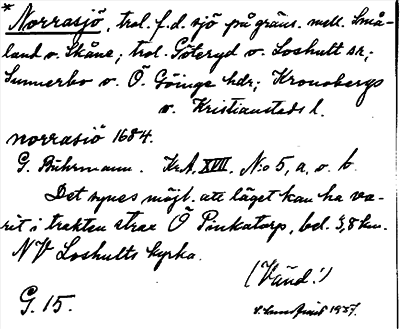 * Norrasjö, trol. f.d. sjö på gräns. mell. Små-
land o. Skåne; trol. Göteryd o. Loshult sr;
Sunnerbo o. Ö. Göinge hdr; Kronobergs
o. Kristianstads l.
norrasiö 1684.
G. Buhrmann. KrA. XVII. N:o 5, a, o. b.
Det synes möjl. att läget kan ha va-
rit i trakten strax Ö Pinkatorp, bel. 3,8 km.
NV Loshults kyrka.
(Vänd!)
G. 15.
1957.